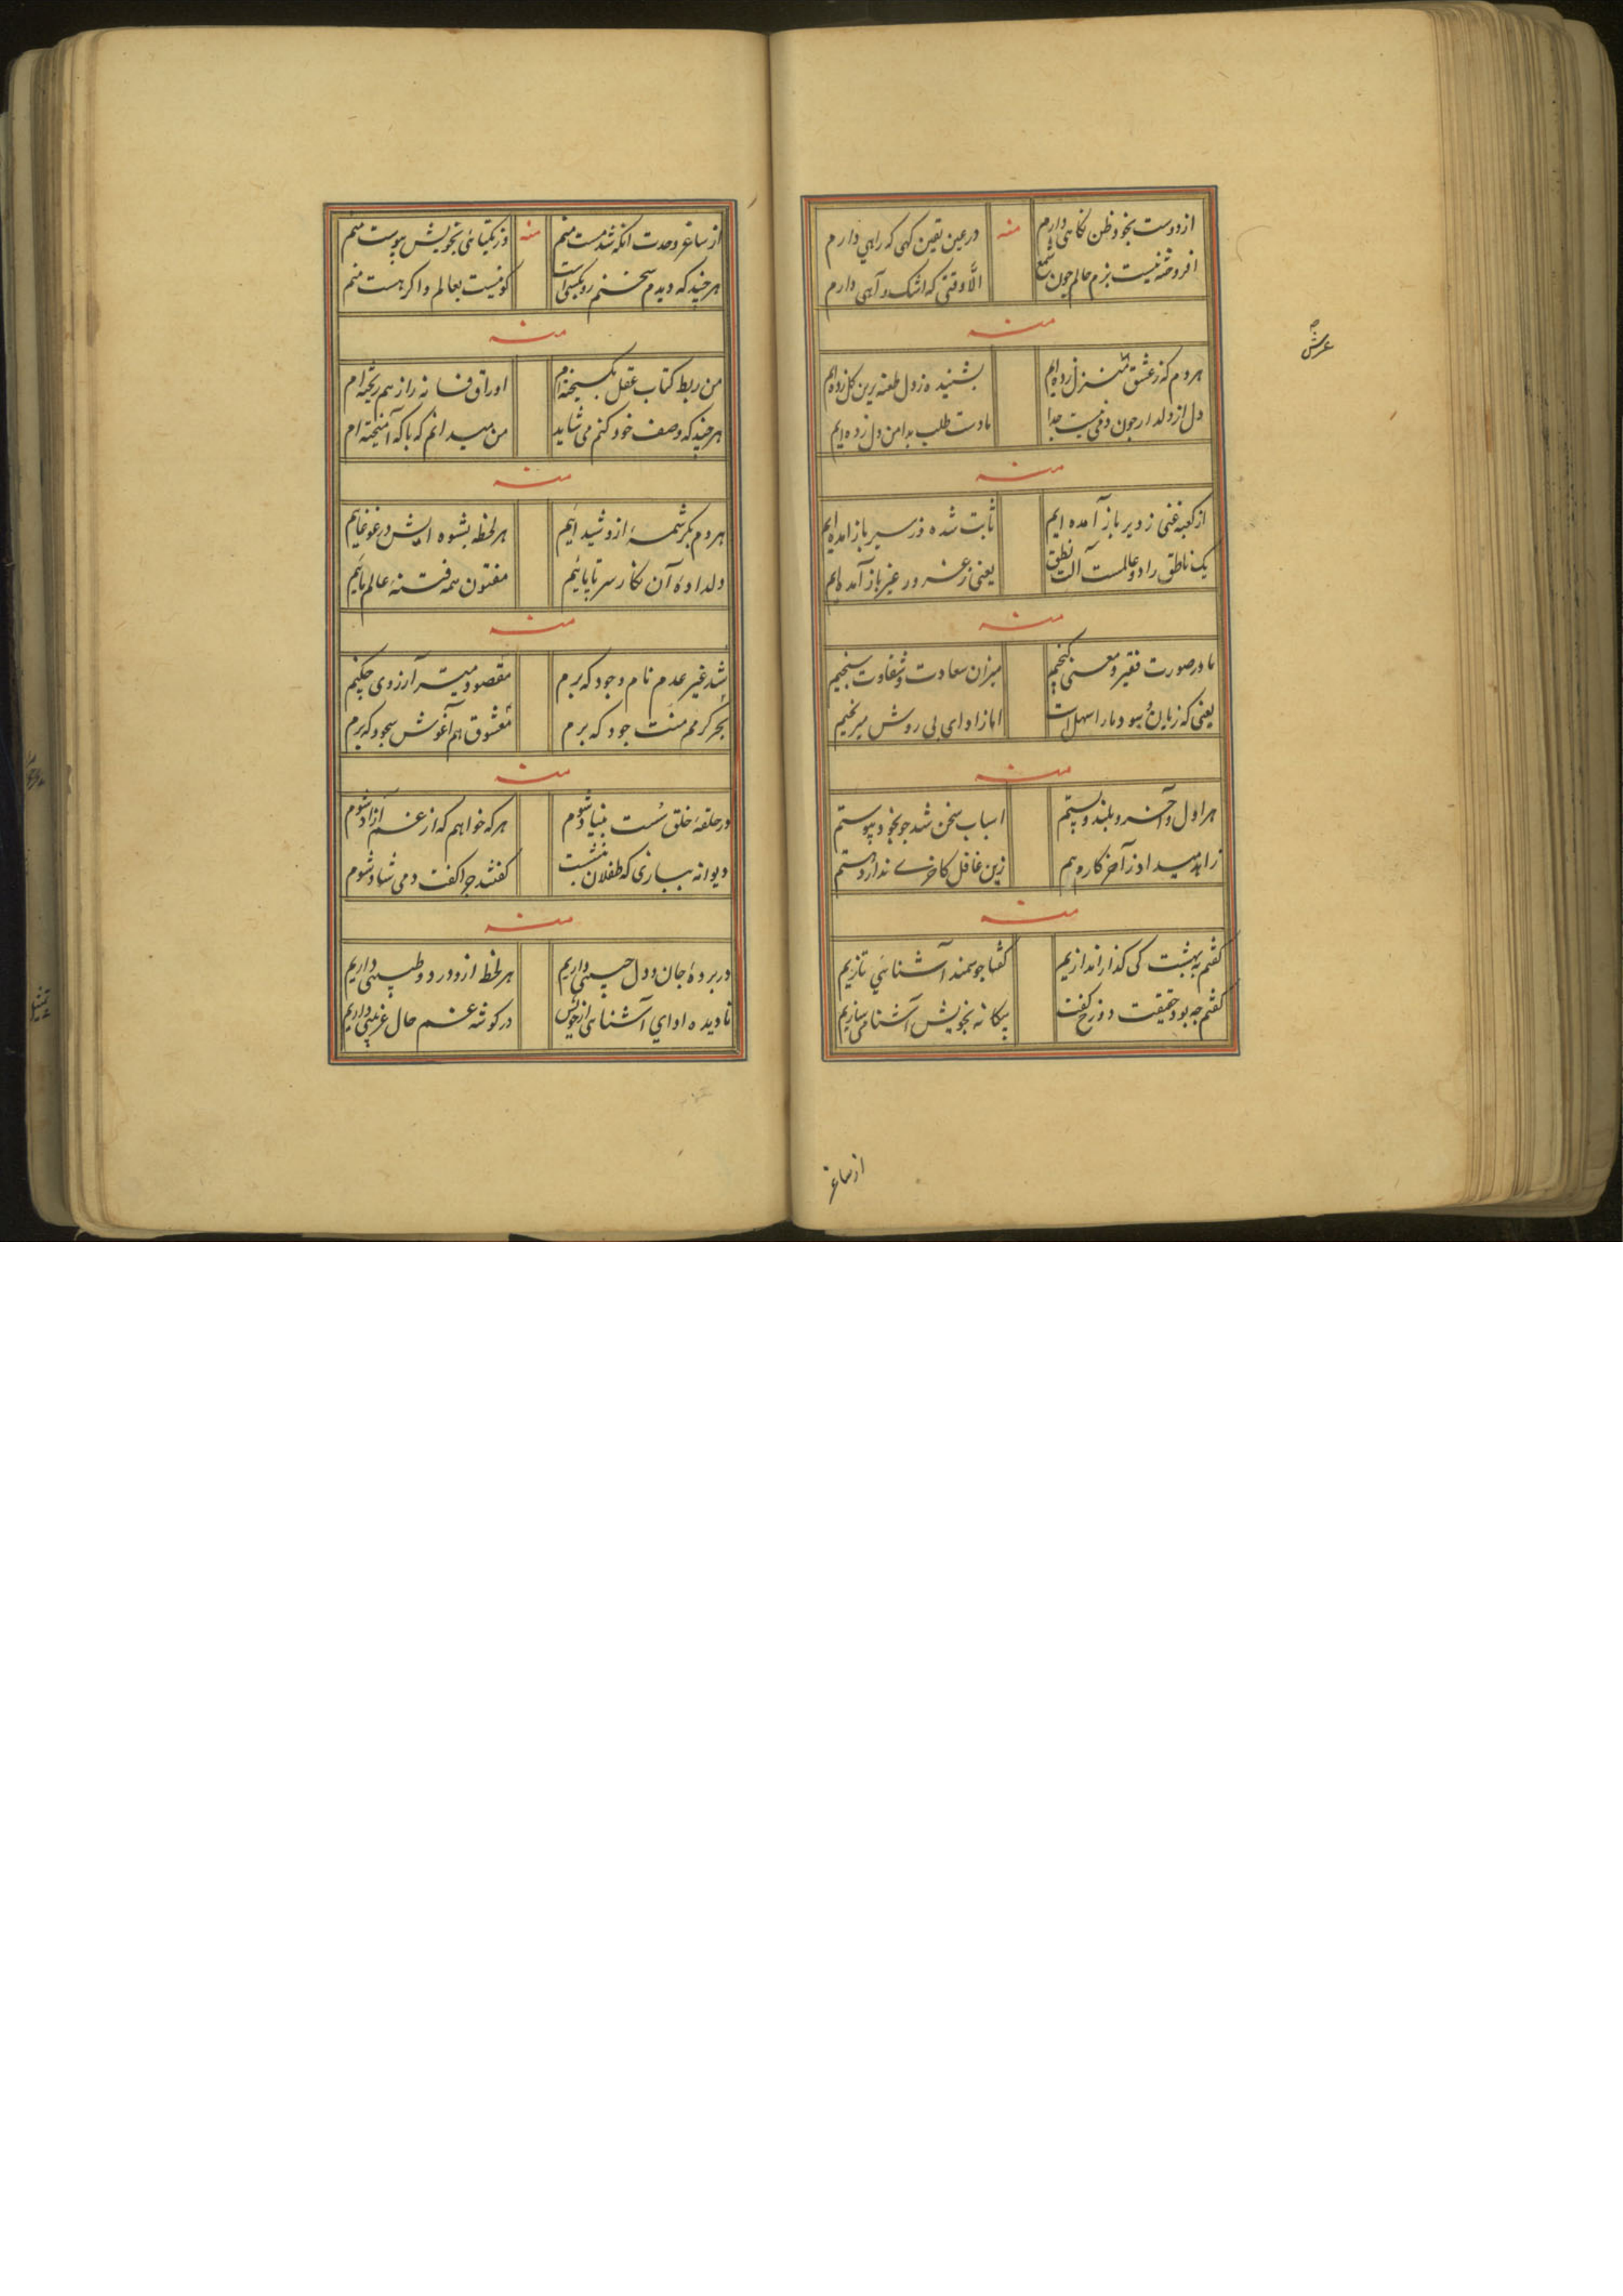 از دوست بخود ظن نکاهی دارم منه در عین یقین کهی که راهی دارم
افروخته نیست بزم حالم چون شمع الّا وقتی که اشک و آهی دارم
منه
هر دم که ز عشق منزل زده ایم بشنیده ز دل طعنه برین کل زده ایم
دل از دلدار چون دمی نیست جدا ما دست طلب بدامن دل زده ایم
عرش
منه
از کعبه غنی ز دیر باز آمده ایم ثابت شده در سیر باز آمده ایم
یک ناطق را دو عالمست آلت نطق یعنی ز غرور غیر باز آمده ایم
منه
ما در صورت فقیر و معنی کنجیم میزان سعادت و شقاوت سنجیم
یعنی که زیان و سود ما را سهل است اما ز ادای بی روش میرنجیم
منه
هر اول و آخر و بلند و پستم اسباب سخن شد چو بخود پیوستم
زاهد میداد ز آخر کارم بیم زین غافل کاخری ندارد دستم
منه
کفتم به بهشت کی کذار اندازیم کفتا چو سمند آشنایی تازیم
کفتم چه بود حقیقت دوزخ کفت بیکانه بخویش آشنا می سازیم
از ساغر
از ساغر وحدت انکه شد مست منم منه وز یکتایی بخویش پیوست منم
هر چند که دیدم سخنم رو بکسی است کو نیست بعالم و اکر هست منم
منه
من ربط کتاب عقل بکسیخته ام اوراق فسانه را ز هم ریخته ام
هر چند که وصف خود کنم می شاید من میدانم که با که آمیخته ام
منه
هر دم بکرشمهٔ ازو شیداییم هر لحظه بشوه ایش در غوغاییم
دلدادهٔ آن نکار سر تا پاییم مفتون همه فتنه عالم ماییم
منه
شد غیر عدم نام وجود که برم مقصود میسر آرزوی چکنم
بحر کرمم منت جود که برم معشوق هم آغوش سجود که برم
منه
در حلقهٔ خلق سست بنیاد شوم هر که خواهم که از غم آزاد شوم
دیوانه ببازی که طفلان بنشست کفتند چرا کفت دمی شاد شوم
منه
در پردهٔ جان و دل حبیبی داریم هر لحظ ازو درد و طبیبی داریم
نادیده ادای آشنایی از خویش در کوشه غم حال غریبی داریم